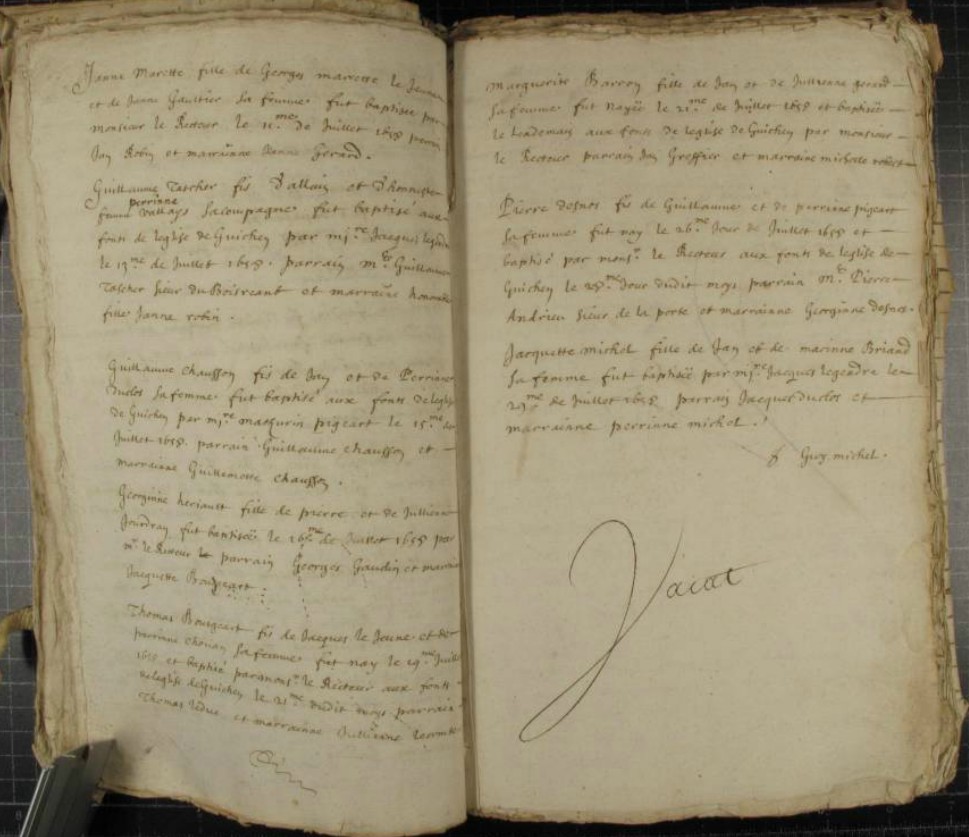 Janne Marette fille de Georges marrette le Jeune
et de Janne Gaultier sa femme fut baptisée par
monsieur le Recteur le 11me de Juillet 1658
Jan Robin et marrainne Janne Gerard.
Guillaume Tascher fis d'allain et
perrinne
Vallays sa compagne fut baptisé aux
fonts de leglise de Guichen par mire Jacques legendre
le 13me de Juillet 1658. parrain mr Guillaume
Tascher sieur du Boisreant et marrainne honorable
fille Janne robin.
Guillaume Chausson fis de Jan et de Perrinne
Duclos sa femme fut baptisé aux fonts de leglise
de Guichen par mire mathurin pigeart le 15me de
Juillet 1658. parrain Guillaume Chausson et
marrainne Guillemette Chausson.
Georginne heriault fille de pierre et de Jullienne
Jourdran fut baptisée le 16me de Juillet 1658 par
mr le Recteur parrain Georges Gaudin et marrainne
Jacquette Bougeart.
Thomas Bougeart fis de Jacques le Jeune et de
perrinne chouan sa femme fut nay le 19me Juillet
1658 et baptisé par monsr le Recteur aux fonts
de leglise de Guichen le 21me dudit moys parrain
Thomas leduc et marrainne Jullienne
Marguerite Barron fille de Jan et de Jullienne gerard
sa femme fut nayée le 21me de Juillet 1658 et baptisée
le lendemain aux fonts de leglise de Guichen par monsieur
le Recteur parrain Jan Greffier et marraine michelle
Pierre Desnos fis de Guillaume et de perrinne pigeart
sa femme fut nay le 26me Jour de Juillet 1658 et
baptisé par monsr le Recteur aux fonts de leglise de
Guichen le 28me Jour dudit moys parrain mr Pierre
Andrieu sieur de la porte et marrainne Georginne Desnos.
Jacquette michel fille de Jan et de marinne Briand
sa femme fut baptisée par mire Jacques legendre le
29me de Juillet 1658 parrain Jacques duclos et
marrainne perrinne michel.
Guy michel.